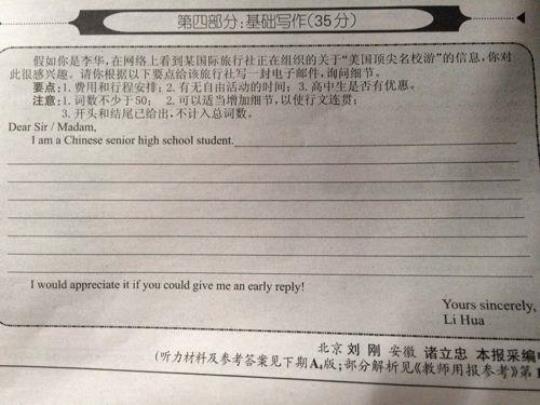 第四部分:基础写作(35分)
假如你是李华,在网络上看到某国际旅行社正在组织的关于“美国顶尖名校游”的信息,你对
此很感兴趣。请你根据以下要点给该旅行社写一封电子邮件,询问细节。
要点:1. 费用和行程安排; 2. 有无自由活动的时间; 3. 高中生是否有优惠。
注意:1. 词数不少于50; 2. 可以适当增加细节,以使行文连贯;
3. 开头和结尾已给出,不计入总词数。
Dear Sir / Madam,
I am a Chinese senior high school student.
I would appreciate it if you could give me an early reply!
Yours sincerely,
Li Hua
北京 刘 刚 安徽 诸立忠 本报采编
(听力材料及参考答案见下期A4版;部分解析见《教师用报参考》第